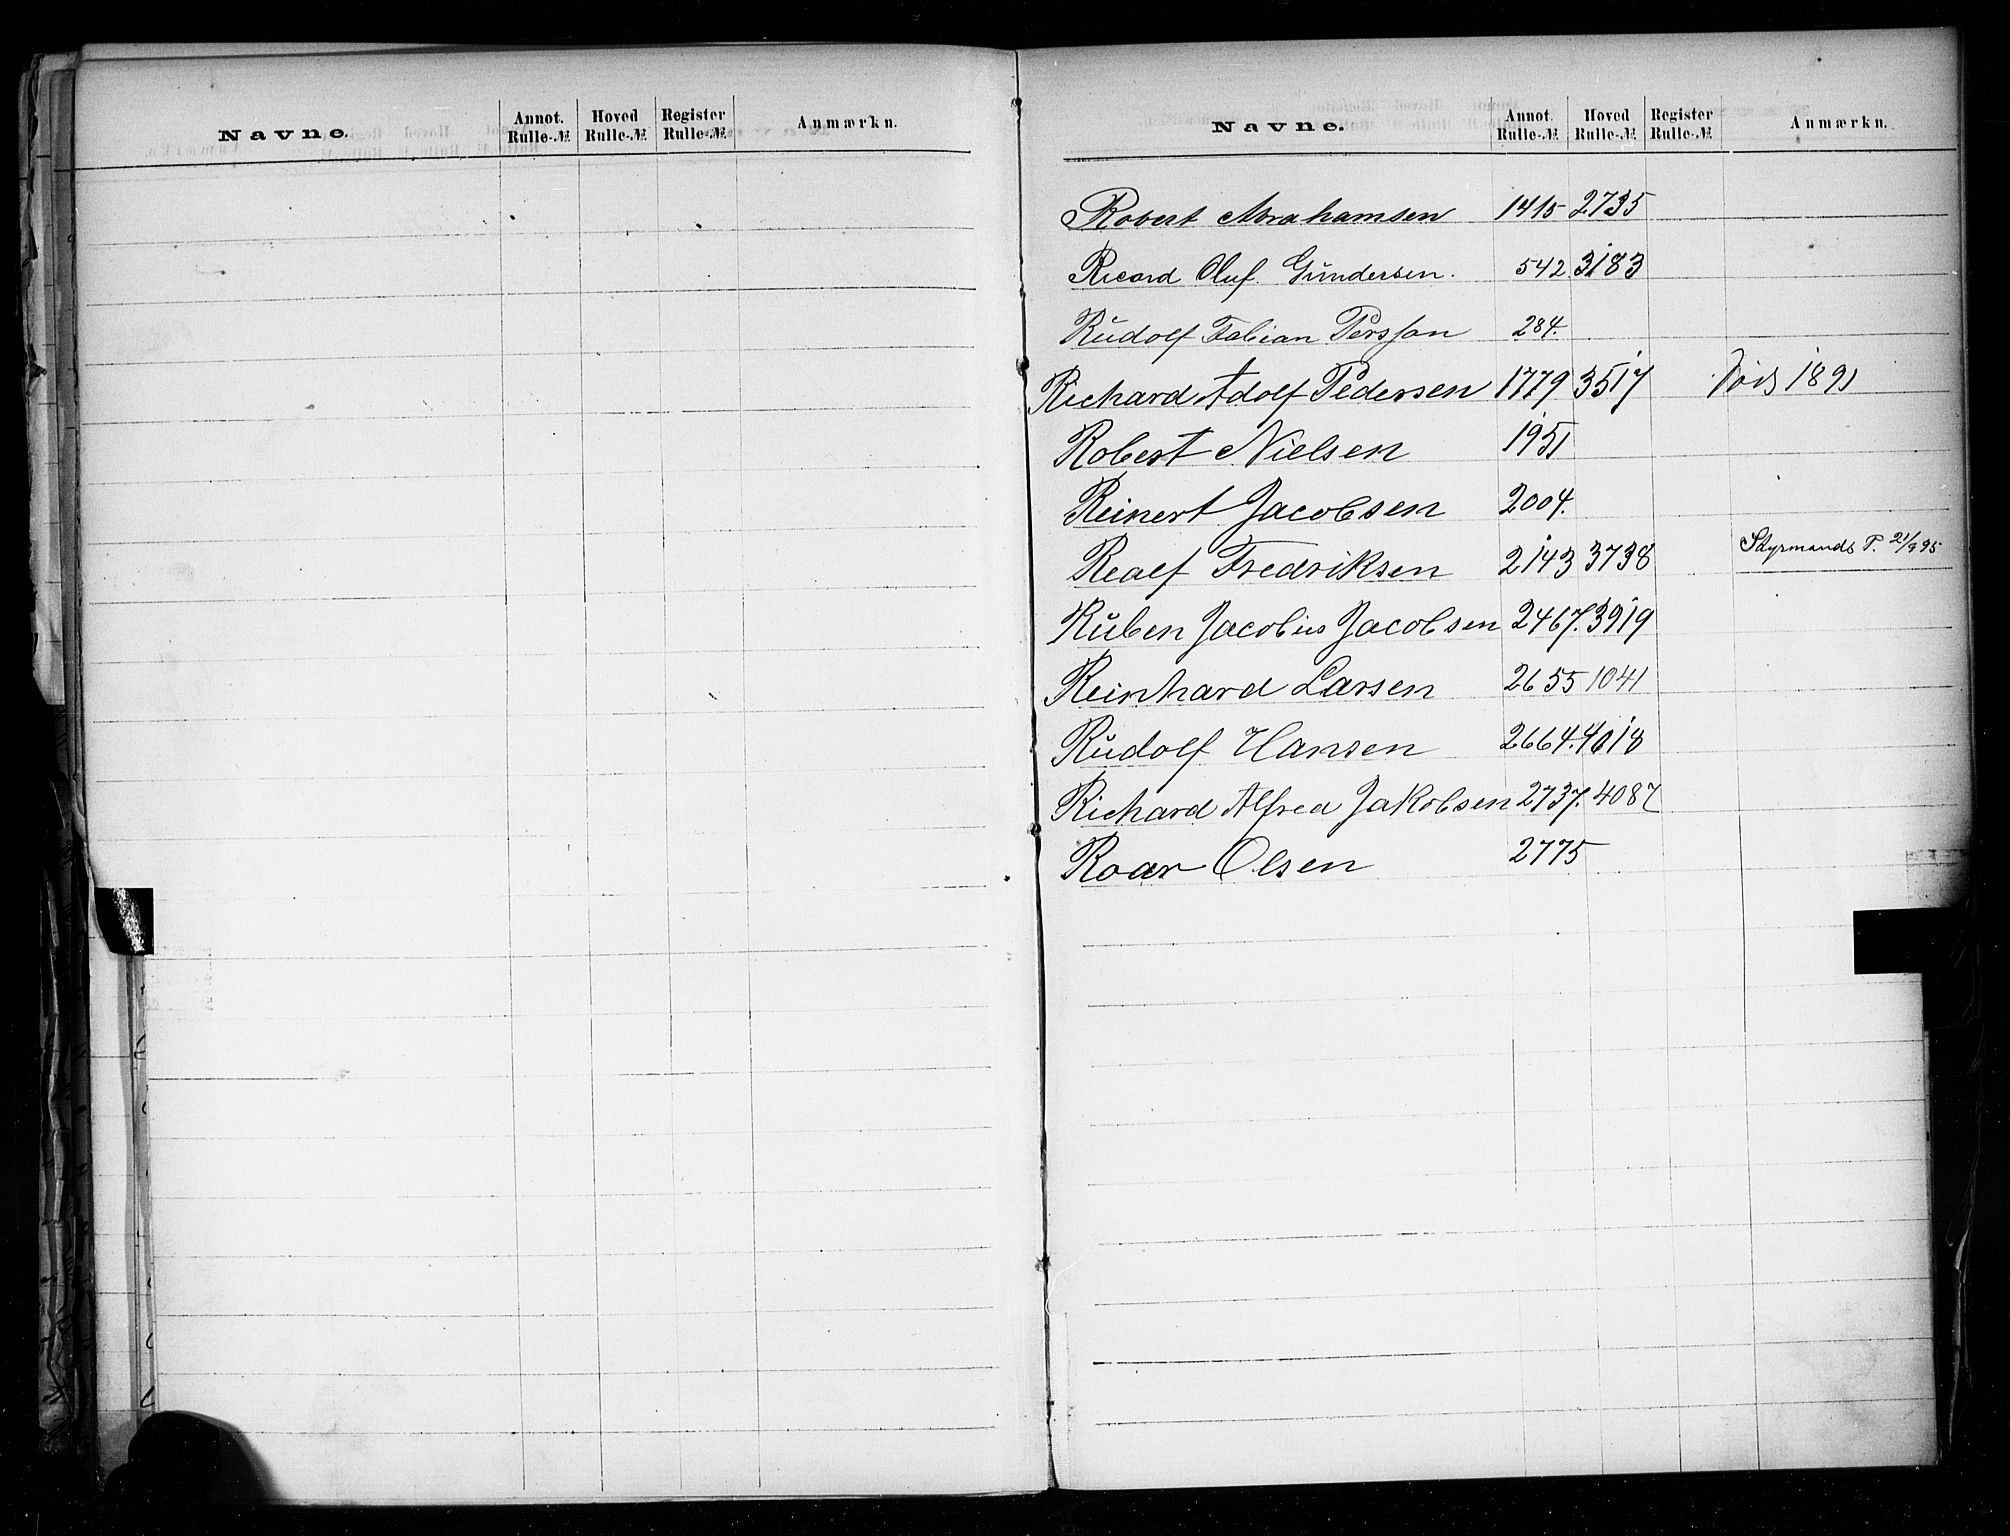 Navne. Annot. Rulle-№ Hoved Rulle-№ Register Rulle-№ Anmærkn.
Navne. Annot. Rulle-№ Hoved Rulle-№ Register Rulle-№ Anmærkn.
Robert Abrahamsen 1415 2735
Ricard Oluf Gundersen. 542 3183
Rudolf Fabian Persson 284.
Richard Adolf Pedersen 1779 3517 Død 1891
Robert Nielsen 1951
Reinert Jacobsen 2004.
Realf Fredriksen 2143 3738 Styrmands P. 21/9 95
Ruben Jacobius Jacobsen 2467. 3919
Reinhard Larsen 2655 1041
Rudolf Hansen 2664. 4018
Richard Alfred Jakobsen 2737. 4087
Roar Olsen 2775